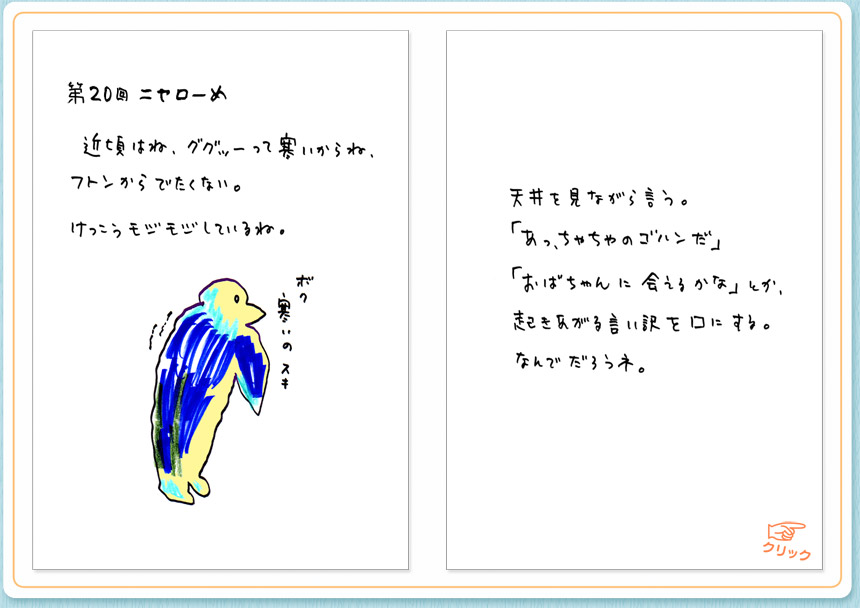 第20回 ニャローめ
近頃はね、ググッーって寒いからね、
フトンからでたくない。
けっこうモジモジしているね。
ボク
寒いのスキ
天井を見ながら言う。
「あっ、ちゃちゃのゴハンだ」
「おばちゃんに会えるかな」とか、
起きあがる言い訳を口にする。
なんでだろうネ。
クリック